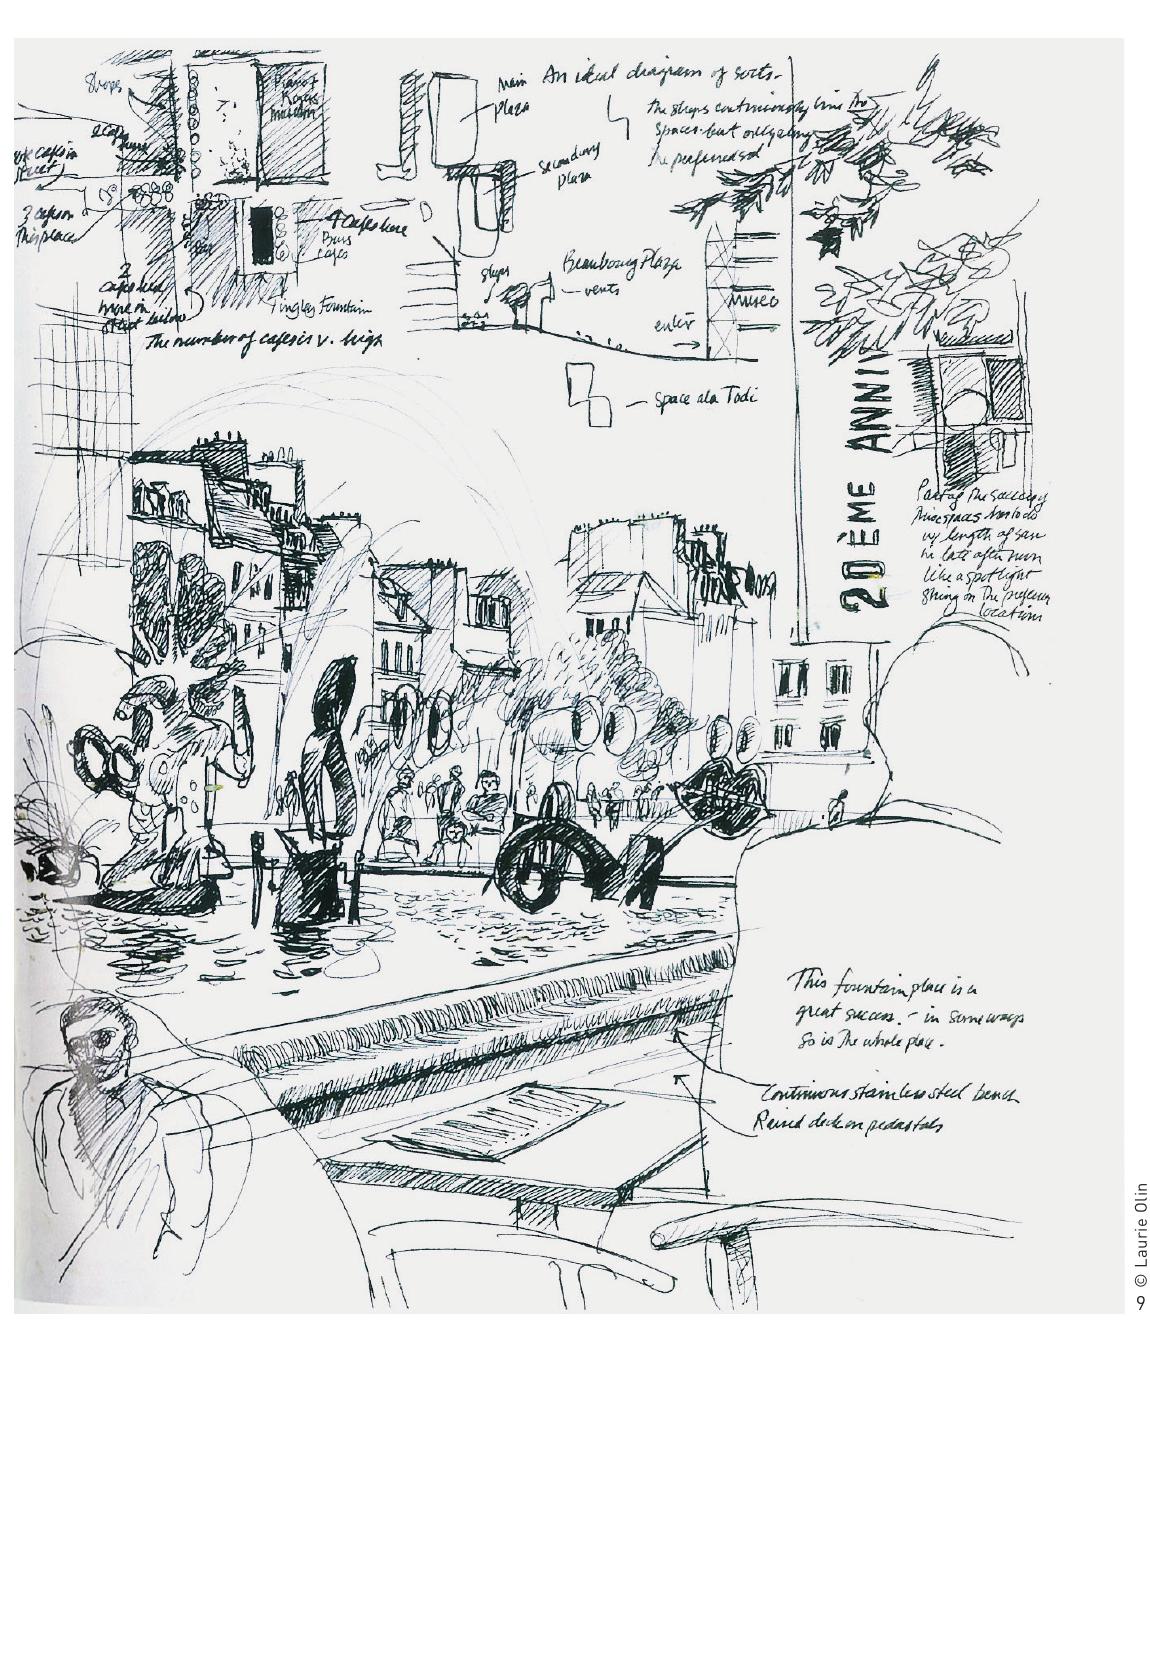 Shops
Piano &
Rogers
museum
main
plaza
An ideal diagram of sorts -
the shops continuously line the
spaces but only along
the preferred
secondary
plaza
2 cafes
cafes in
street
2 cafes on
This place
4 Cafes here
Bars
Cafes
2
cafes here
more in
street below
Tingley Fountain
The number of cafes is v. high
shops
Beaubourg Plaza
vents
museo
enter
Space ala Todi
20ÈME ANNIV
Part of the success of
these spaces has to do
w/ length of sun
in late afternoon
like a spotlight
shing on The preferred
location
This fountain place is a
great success. - in some ways
so is The whole place.
Continuous stainless steel bench
Raised deck on pedastals
© Laurie Olin
9